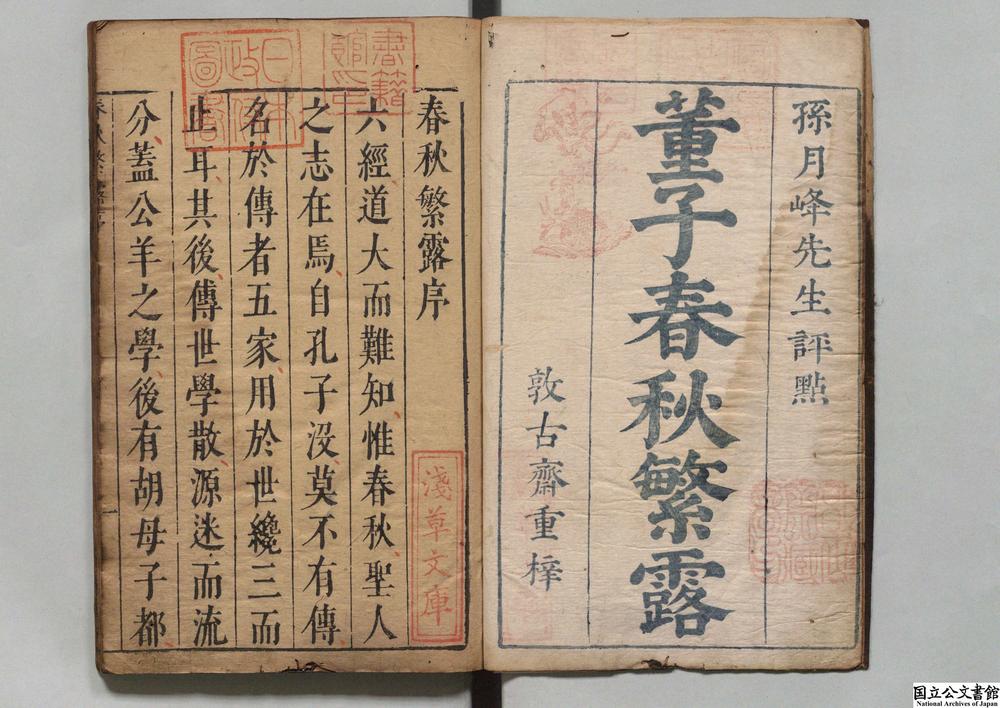 孫月峰先生評點
董子春秋繁露
敦古齋重梓
春秋繁露序
六經道大而難知惟春秋聖人
之志在焉自孔子沒莫不有傳
名於傳者五家用於世纔三而
止耳其後傳世學散源迷而流
分蓋公羊之學後有胡母子都
書籍館印
日本政府圖書
淺草文庫
国立公文書館
National Archives of Japan